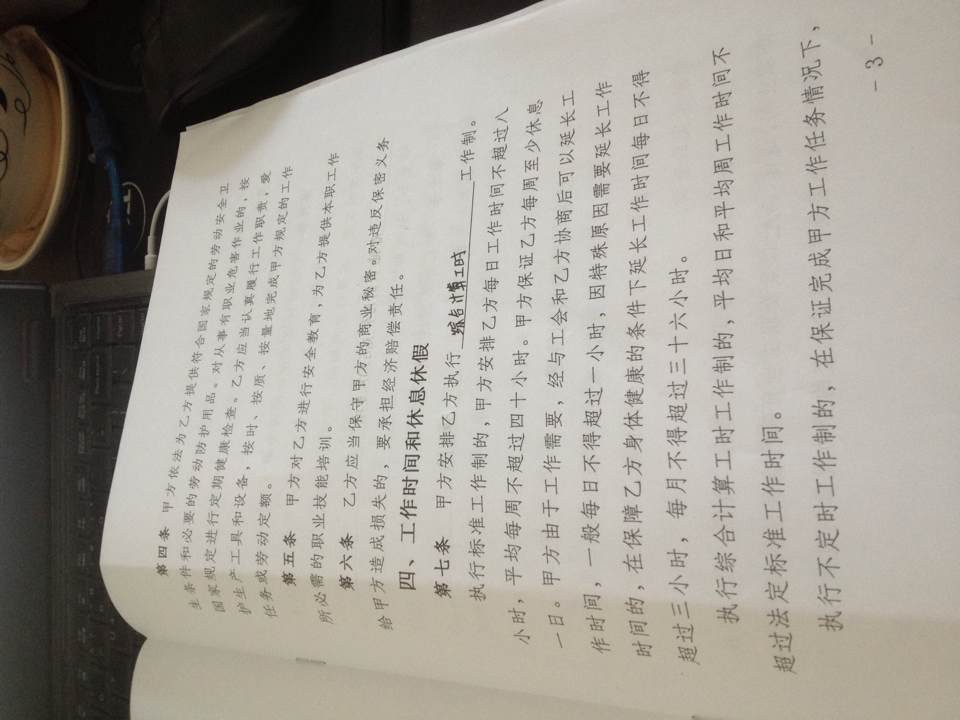 第四条 甲方依法为乙方提供符合国家规定的劳动安全卫
生条件和必要的劳动防护用品。对从事有职业危害作业的，按
国家规定进行定期健康检查。乙方应当认真履行工作职责，爱
护生产工具和设备，按时、按质、按量地完成甲方规定的工作
任务或劳动定额。
第五条 甲方对乙方进行安全教育，为乙方提供本职工作
所必需的职业技能培训。
第六条 乙方应当保守甲方的商业秘密。对违反保密义务
给甲方造成损失的，要承担经济赔偿责任。
四、工作时间和休息休假
第七条 甲方安排乙方执行 综合计算工时 工作制。
执行标准工作制的，甲方安排乙方每日工作时间不超过八
小时，平均每周不超过四十小时。甲方保证乙方每周至少休息
一日。甲方由于工作需要，经与工会和乙方协商后可以延长工
作时间，一般每日不得超过一小时，因特殊原因需要延长工作
时间的，在保障乙方身体健康的条件下延长工作时间每日不得
超过三小时，每月不得超过三十六小时。
执行综合计算工时工作制的，平均日和平均周工作时间不
超过法定标准工作时间。
执行不定时工作制的，在保证完成甲方工作任务情况下，
- 3 -